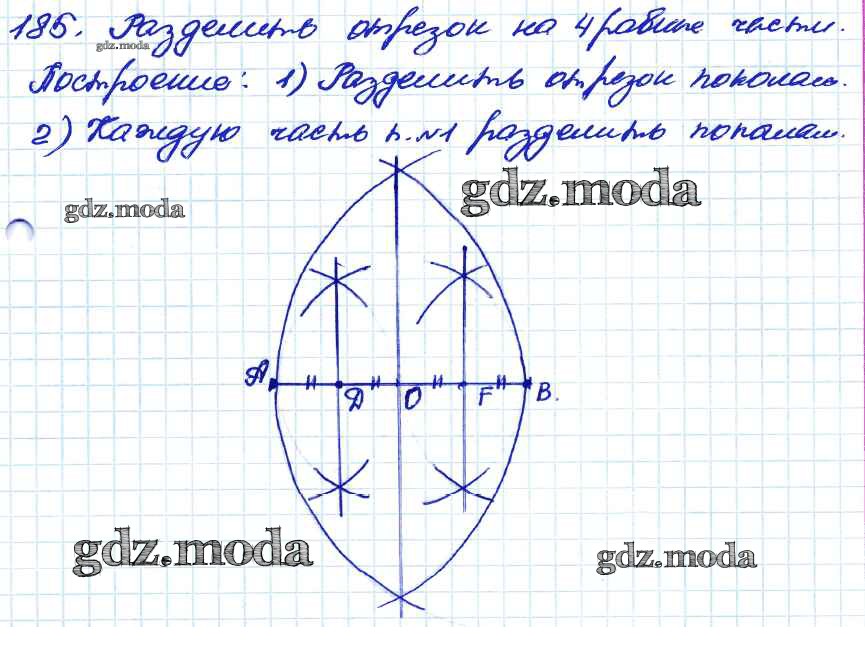 185. Разделить отрезок на 4 равные части.
gdz.moda
Построение: 1) Разделить отрезок пополам.
2) Каждую часть п. №1 разделить пополам.
gdz.moda
gdz.moda
А D O F B.
gdz.moda
gdz.moda